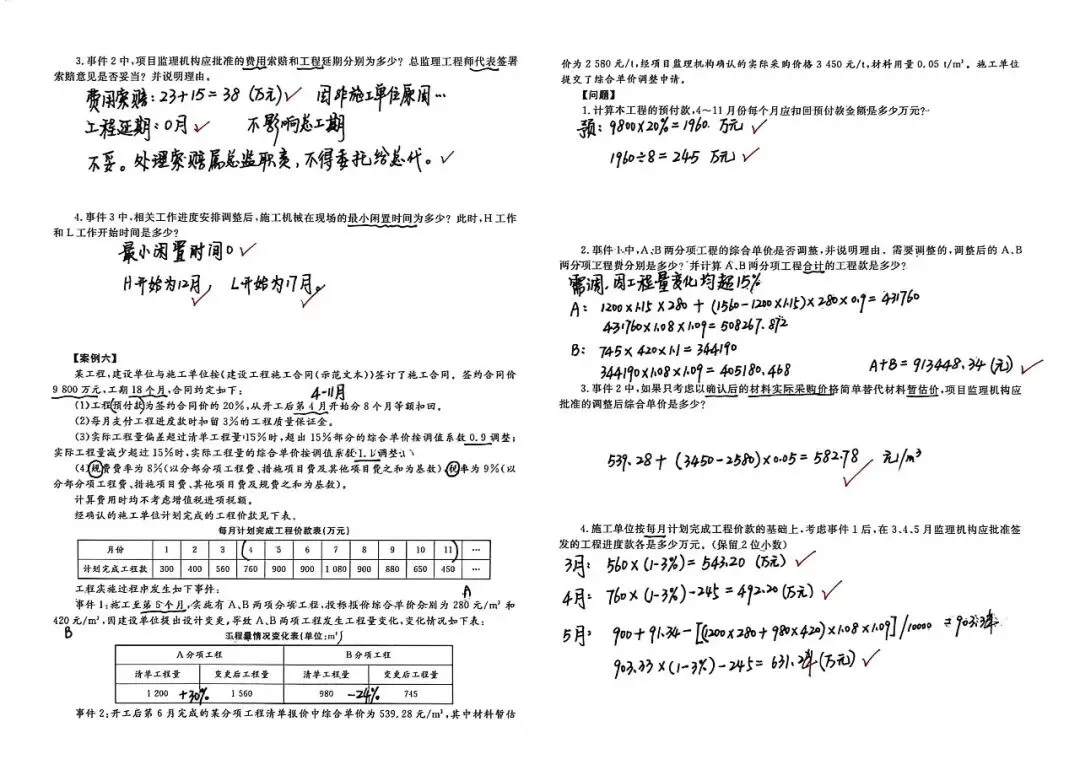 3.事件2中,项目监理机构应批准的费用索赔和工程延期分别为多少?总监理工程师代表签署
索赔意见是否妥当?并说明理由。
费用索赔:23+15=38(万元)✓ 因非施工单位原因…
工程延期:0月✓ 不影响总工期
不妥。处理索赔属总监职责,不得委托给总代。✓
4.事件3中,相关工作进度安排调整后,施工机械在现场的最小闲置时间为多少?此时,H工作
和L工作开始时间是多少?
最小闲置时间0✓
H开始为12月, L开始为17月。
【案例六】
某工程,建设单位与施工单位按《建设工程施工合同(示范文本)》签订了施工合同。签约合同价
9 800万元,工期18个月,合同约定如下:
4-11月
(1)工程预付款为签约合同价的20%,从开工后第4月开始分8个月等额扣回。
(2)每月支付工程进度款时扣留3%的工程质量保证金。
(3)实际工程量偏差超过清单工程量15%时,超出15%部分的综合单价按调值系数0.9调整;
实际工程量减少超过15%时,实际工程量的综合单价按调值系数1.1调整。
(4)规费费率为8%(以分部分项工程费、措施项目费及其他项目费之和为基数),税率为9%(以
分部分项工程费、措施项目费、其他项目费及规费之和为基数)。
计算费用时均不考虑增值税进项税额。
经确认的施工单位计划完成的工程价款见下表。
每月计划完成工程价款表(万元)
月份 1 2 3 4 5 6 7 8 9 10 11 …
计划完成工程款 300 400 560 760 900 900 1 080 900 880 650 450 …
工程实施过程中发生如下事件:
A
事件1:施工至第5个月,实施有A、B两项分项工程,投标报价综合单价分别为280元/m³和
420元/m³,因建设单位提出设计变更,导致A、B两项工程发生工程量变化,变化情况如下表:
B
工程量情况变化表(单位:m³)
A分项工程 B分项工程
清单工程量 变更后工程量 清单工程量 变更后工程量
1 200 +30% 1 560 980 -24% 745
事件2:开工后第6月完成的某分项工程清单报价中综合单价为539.28元/m³,其中材料暂估
价为2 580元/t,经项目监理机构确认的实际采购价格3 450元/t,材料用量0.05 t/m³。施工单位
提交了综合单价调整申请。
【问题】
1.计算本工程的预付款,4~11月份每个月应扣回预付款金额是多少万元?
预:9800×20%=1960.万元✓
1960÷8=245 万元✓
2.事件1中,A、B两分项工程的综合单价是否调整,并说明理由。需要调整的,调整后的A、B
两分项工程费分别是多少?并计算A、B两分项工程合计的工程款是多少?
需调.因工程量变化均超15%
A: 1200×1.15×280+(1560-1200×1.15)×280×0.9=431760
431760×1.08×1.09=508267.872
B: 745×420×1.1=344190
344190×1.08×1.09=405180.468
A+B=913448.34(元)✓
3.事件2中,如果只考虑以确认后的材料实际采购价格简单替代材料暂估价,项目监理机构应
批准的调整后综合单价是多少?
539.28+(3450-2580)×0.05=582.78 元/m³
4.施工单位按每月计划完成工程价款的基础上,考虑事件1后,在3、4、5月监理机构应批准签
发的工程进度款各是多少万元。(保留2位小数)
3月: 560×(1-3%)=543.20(万元)✓
4月: 760×(1-3%)-245=492.20(万元)✓
5月: 900+91.34-[(1200×280+980×420)×1.08×1.09]/10000=903.3
903.33×(1-3%)-245=631.2 (万元)✓